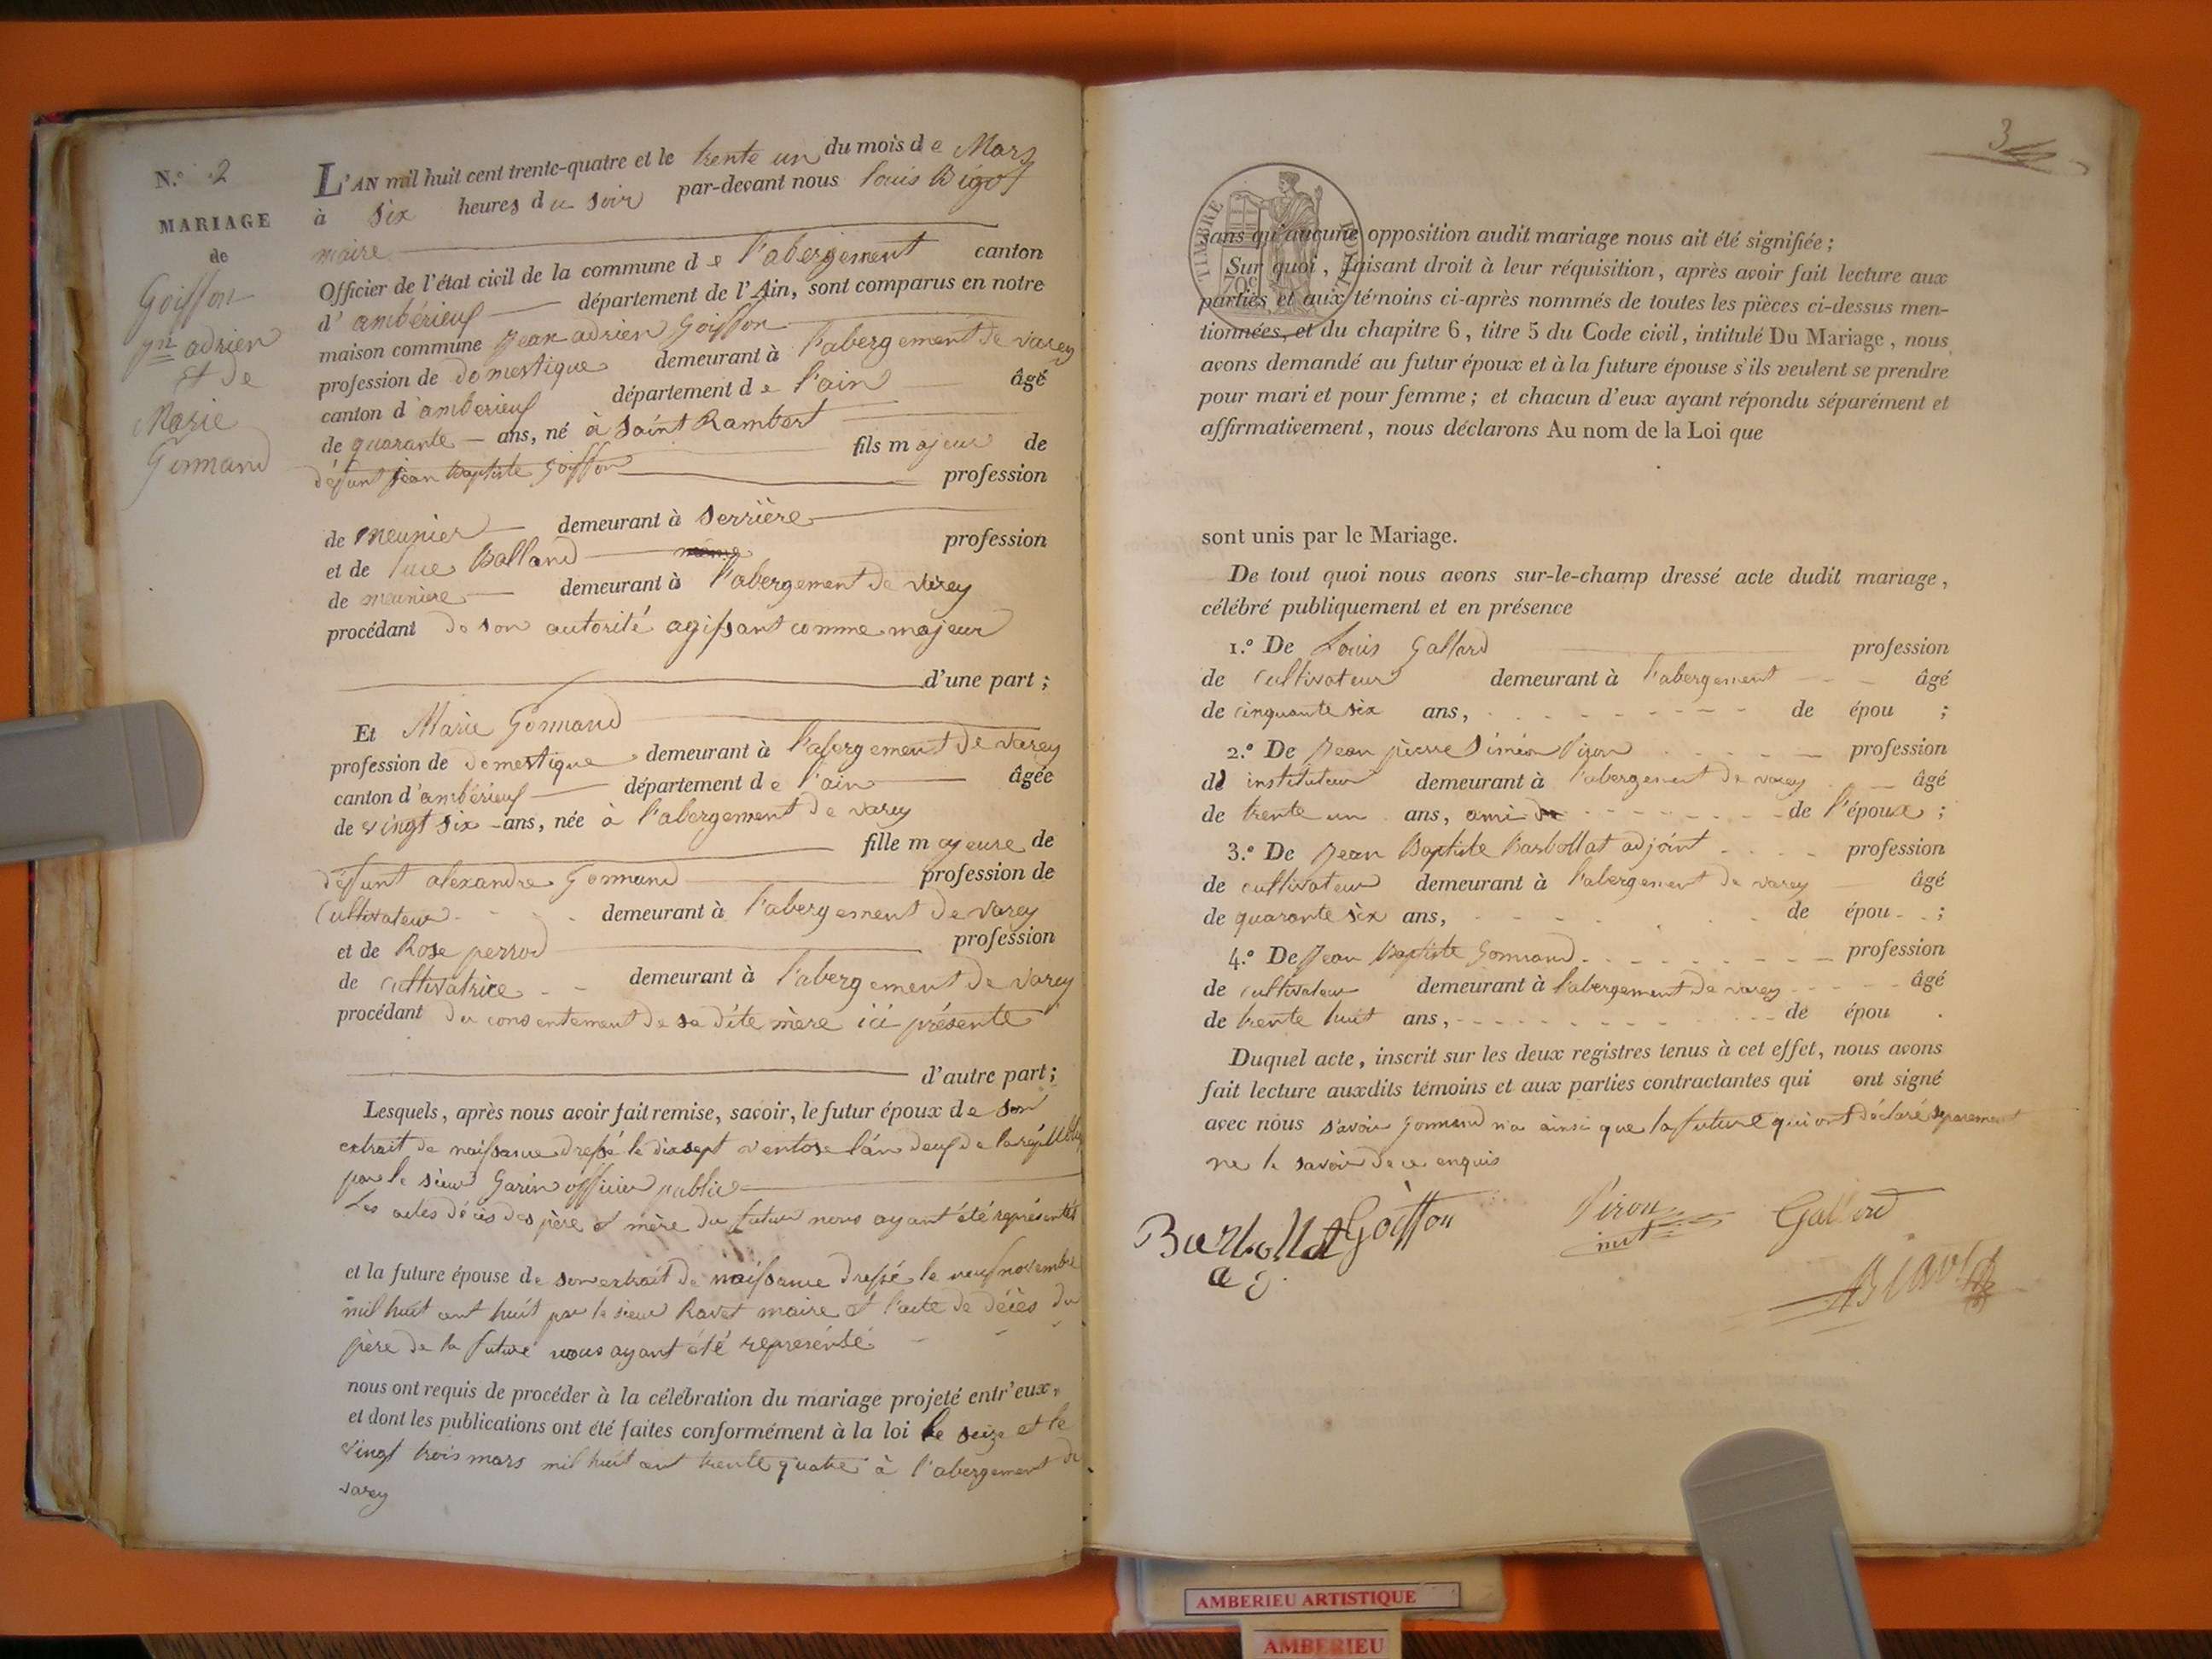 N.º 2
MARIAGE
de
Goiffon
jn adrien
et de
Marie
Gonnand
L'AN mil huit cent trente-quatre et le trente un du mois de Mars
à six heures du soir par-devant nous louis Bigot
maire
Officier de l'état civil de la commune de l'abergement canton
d'ambérieuf département de l'Ain, sont comparus en notre
maison commune jean adrien Goiffon
profession de domestique demeurant à l'abergement de varey
canton d'amberieuf département de l'ain âgé
de quarante ans, né à Saint Rambert
fils majeur de
défunt jean baptiste goiffon profession
de meunier demeurant à Serrière
et de luce Balland profession
de meunière demeurant à l'abergement de varey
procédant de son autorité agissant comme majeur
d'une part ;
Et Marie Gonnand
profession de domestique demeurant à l'abergement de varey
canton d'ambérieuf département de l'ain âgée
de vingt six ans, née à l'abergement de varey
fille majeure de
défunt alexandre Gonnand profession de
Cultivateur demeurant à l'abergement de varey
et de Rose perrod profession
de cultivatrice demeurant à l'abergement de varey
procédant du consentement de sa dite mère ici présente
d'autre part ;
Lesquels, après nous avoir fait remise, savoir, le futur époux de son
extrait de naissance dressé le dixsept ventose l'an deux de la république
par le sieur Garin officier public
Les actes décès des père et mère du futur nous ayant été représentés
et la future épouse de son extrait de naissance dressé le neuf novembre
mil huit cent huit par le sieur Ravet maire et l'acte de décès du
père de la future nous ayant été représenté
nous ont requis de procéder à la célébration du mariage projeté entr'eux,
et dont les publications ont été faites conformément à la loi le seize et le
vingt trois mars mil huit cent trente quatre à l'abergement de
varey
3
TIMBRE ROYAL
70c
sans qu'aucune opposition audit mariage nous ait été signifiée ;
Sur quoi, faisant droit à leur réquisition, après avoir fait lecture aux
parties, et aux témoins ci-après nommés de toutes les pièces ci-dessus men-
tionnées, et du chapitre 6, titre 5 du Code civil, intitulé Du Mariage, nous
avons demandé au futur époux et à la future épouse s'ils veulent se prendre
pour mari et pour femme ; et chacun d'eux ayant répondu séparément et
affirmativement, nous déclarons Au nom de la Loi que
sont unis par le Mariage.
De tout quoi nous avons sur-le-champ dressé acte dudit mariage,
célébré publiquement et en présence
1.º De Louis Gallard profession
de Cultivateur demeurant à l'abergement âgé
de cinquante six ans, de épou ;
2.º De jean pierre Siméon Piron profession
de instituteur demeurant à l'abergement de varey âgé
de trente un ans, ami de l'époux ;
3.º De jean Baptiste Barbollat adjoint profession
de cultivateur demeurant à l'abergement de varey âgé
de quarante six ans, de épou ;
4.º De jean Baptiste Gonnand profession
de cultivateur demeurant à l'abergement de varey âgé
de trente huit ans, de épou .
Duquel acte, inscrit sur les deux registres tenus à cet effet, nous avons
fait lecture auxdits témoins et aux parties contractantes qui ont signé
avec nous savoir Gonnand non ainsi que la future qui ont déclaré séparement
ne le savoir de ce enquis
Barbollat Goiffon Piron Gallard
inst
AMBERIEU ARTISTIQUE
AMBERIEU